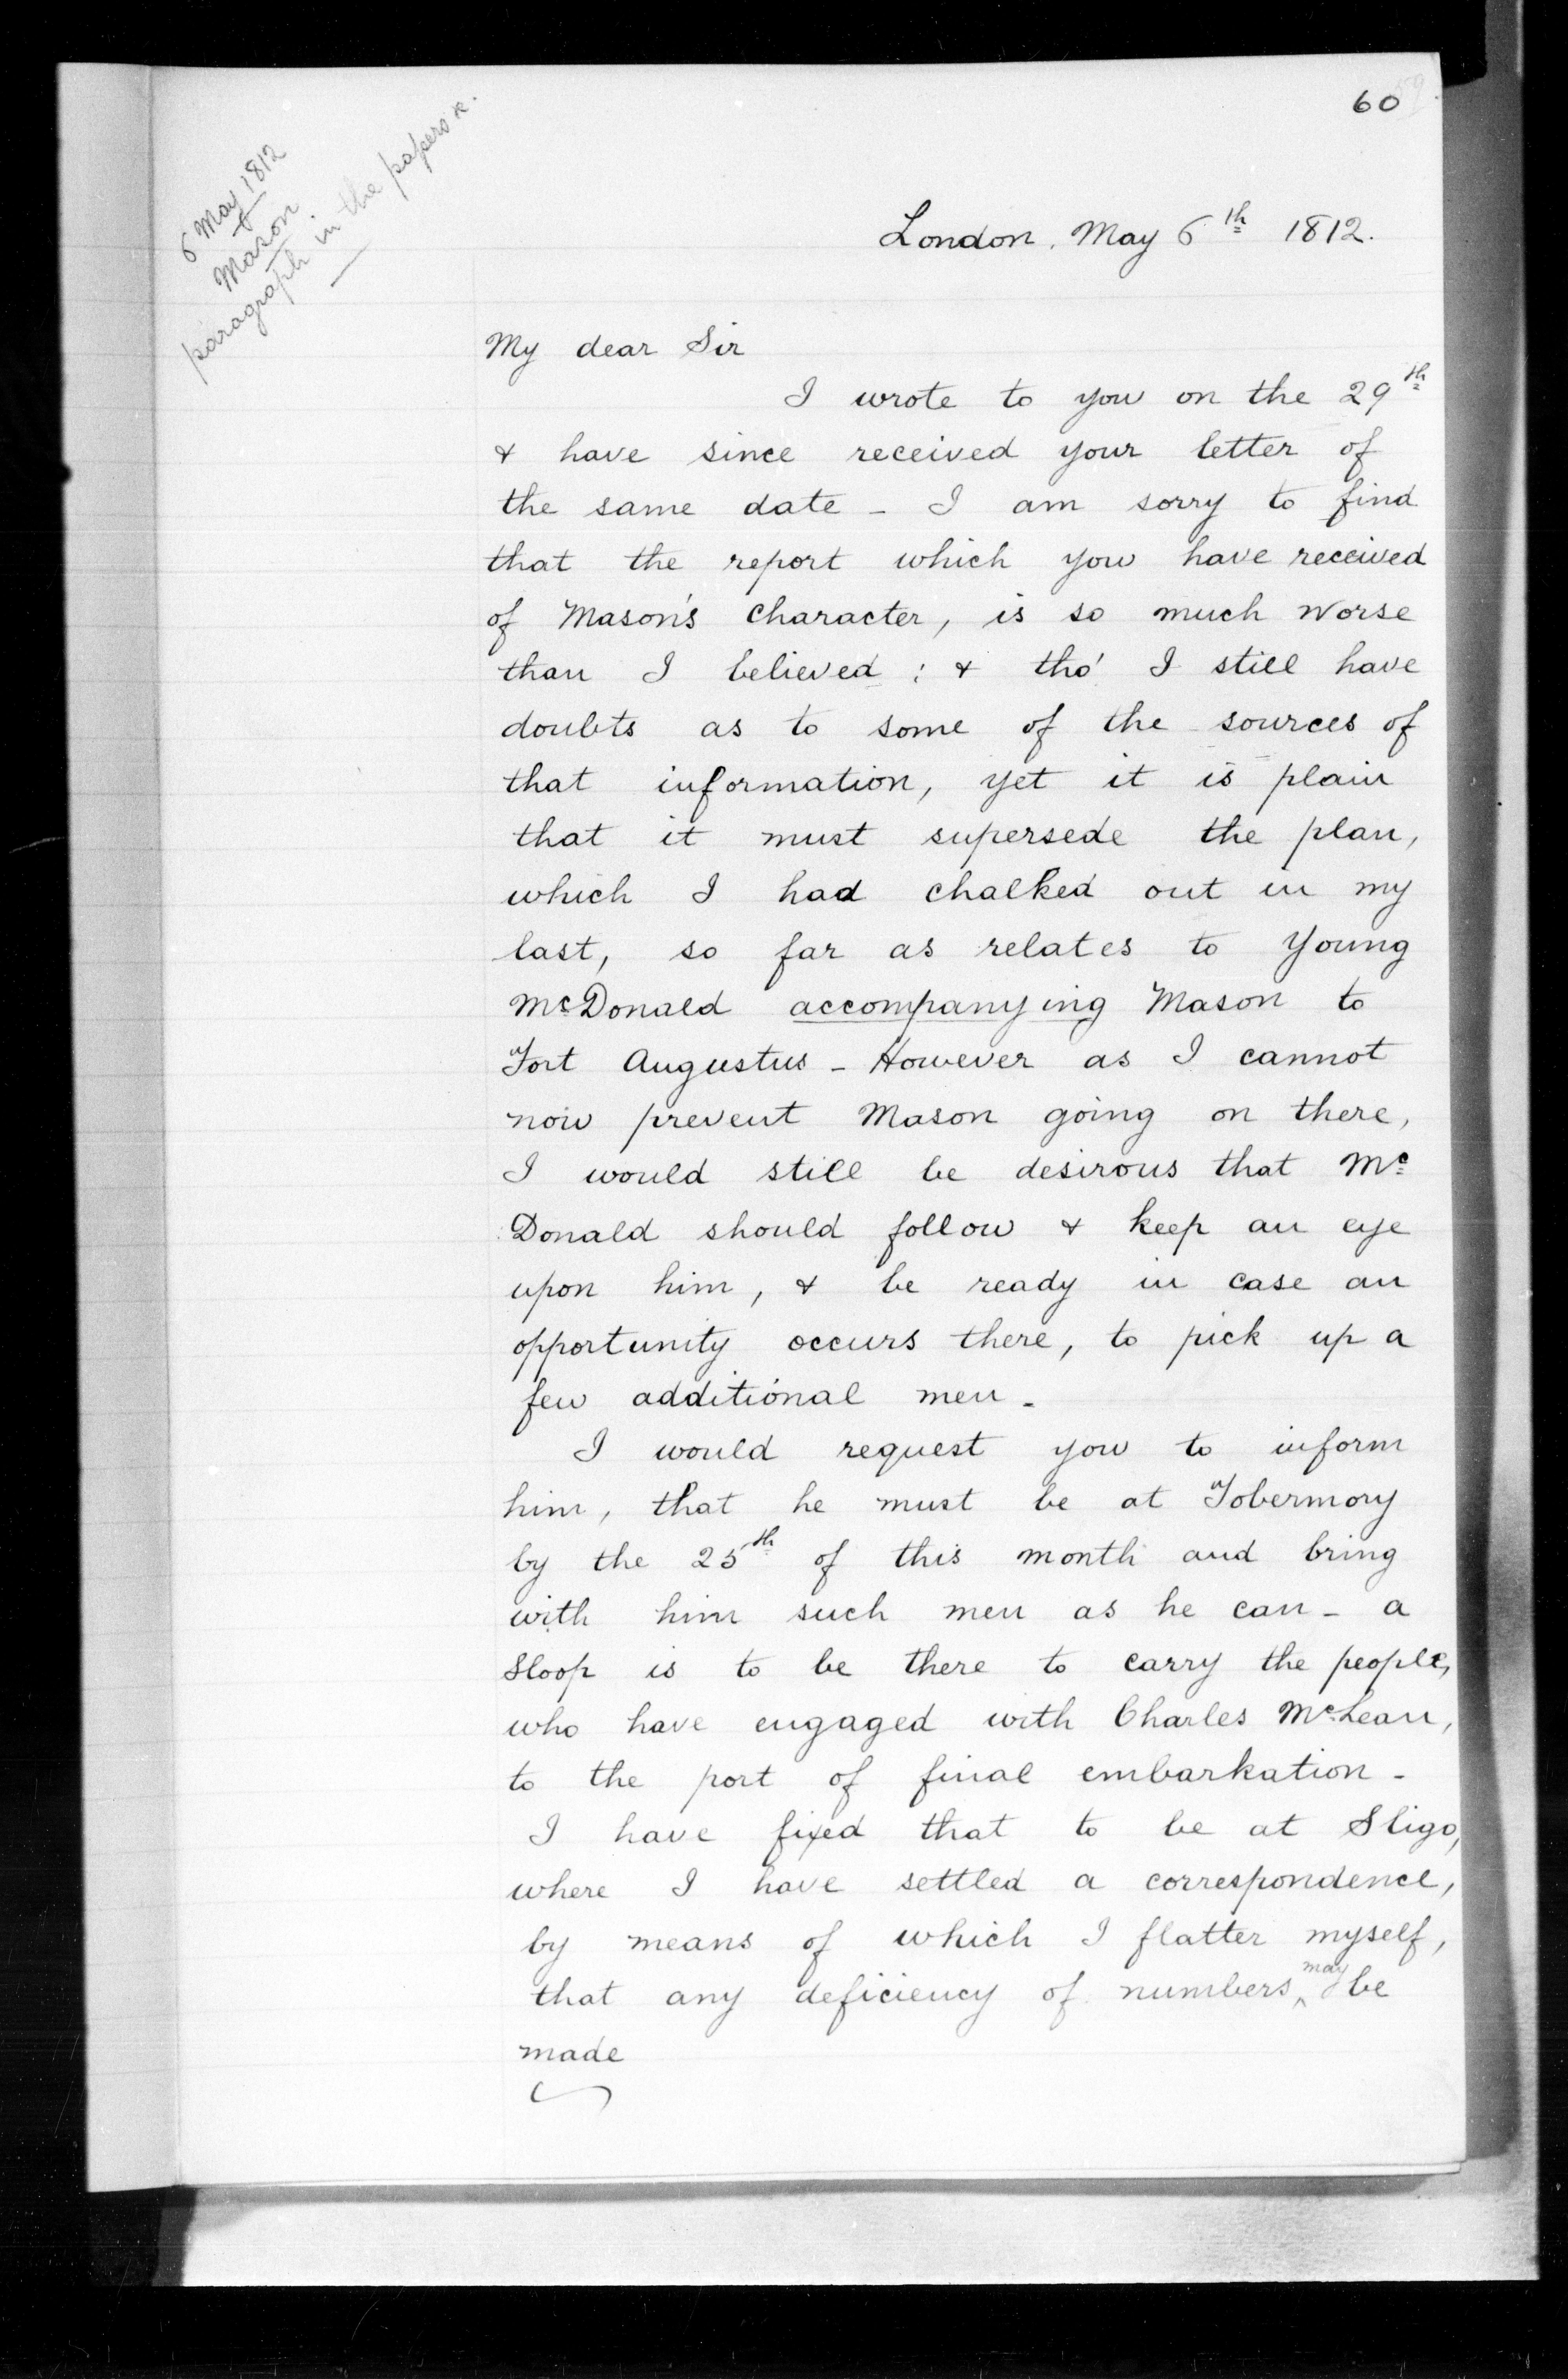 60
6 May 1812
Mason
paragraph in the papers &.
London. May 6th 1812.
My dear Sir
I wrote to you on the 29th
& have since received your letter of
the same date - I am sorry to find
that the report which you have received
of Mason's character, is so much worse
than I believed : & tho' I still have
doubts as to some of the sources of
that information, yet it is plain
that it must supersede the plan,
which I had chalked out in my
last, so far as relates to Young
McDonald accompanying Mason to
Fort Augustus - However as I cannot
now prevent Mason going on there,
I would still be desirous that Mc
Donald should follow & keep an eye
upon him, & be ready in case an
opportunity occurs there, to pick up a
few additional men -
I would request you to inform
him, that he must be at Tobermory
by the 25th of this month and bring
with him such men as he can - a
Sloop is to be there to carry the people,
who have engaged with Charles McLean,
to the port of final embarkation -
I have fixed that to be at Sligo,
where I have settled a correspondence,
by means of which I flatter myself,
that any deficiency of numbers may be
made